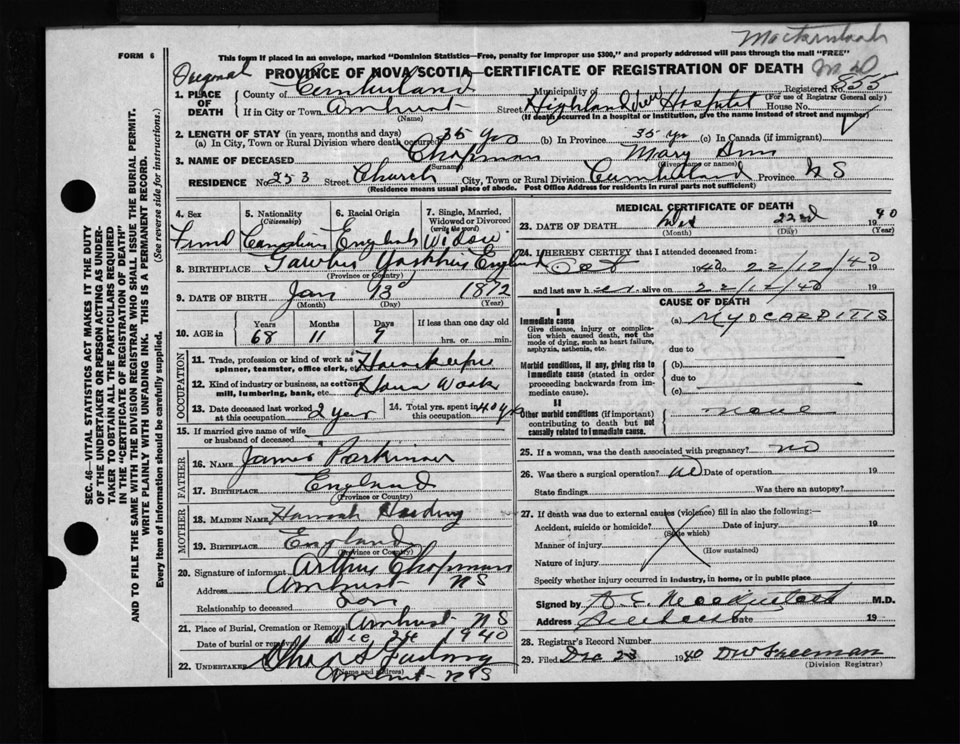 FORM 6
This form if placed in an envelope, marked "Dominion Statistics—Free, penalty for improper use $300," and properly addressed will pass through the mail "FREE"
Original
PROVINCE OF NOVA SCOTIA—CERTIFICATE OF REGISTRATION OF DEATH
Registered No. 855
(For use of Registrar General only)
1. PLACE OF DEATH
County of Cumberland Municipality of
If in City or Town Amherst Street Highland View Hospital House No.
(Name) (If death occurred in a hospital or institution, give the name instead of street and number)
2. LENGTH OF STAY (in years, months and days)
(a) In City, Town or Rural Division where death occurred 35 yrs (b) In Province 35 yrs (c) In Canada (if immigrant)
3. NAME OF DECEASED Chapman Mary Ann
(Surname) (Given name or names)
RESIDENCE No. 253 Street Church City, Town or Rural Division Cumberland Province N S
(Residence means usual place of abode. Post Office Address for residents in rural parts not sufficient)
SEC. 46—VITAL STATISTICS ACT MAKES IT THE DUTY
OF THE UNDERTAKER OR PERSON ACTING AS UNDER-
TAKER TO OBTAIN ALL THE PARTICULARS REQUIRED
IN THE "CERTIFICATE OF REGISTRATION OF DEATH"
AND TO FILE THE SAME WITH THE DIVISION REGISTRAR WHO SHALL ISSUE THE BURIAL PERMIT.
WRITE PLAINLY WITH UNFADING INK. THIS IS A PERMANENT RECORD.
Every item of information should be carefully supplied. (See reverse side for instructions.)
4. Sex 5. Nationality (Citizenship) 6. Racial Origin 7. Single, Married, Widowed or Divorced (write the word)
Canadian English Widow
8. BIRTHPLACE Yorkshire England
(Province or Country)
9. DATE OF BIRTH Jan 13 1872
(Month) (Day) (Year)
10. AGE in Years Months Days If less than one day old
68 11 9 hrs. or min.
OCCUPATION
11. Trade, profession or kind of work as spinner, teamster, office clerk, etc. Housekeeper
12. Kind of industry or business, as cotton mill, lumbering, bank, etc. House Work
13. Date deceased last worked at this occupation 2 year 14. Total yrs. spent in this occupation 40 yrs
15. If married give name of wife or husband of deceased
FATHER
16. NAME James Parkinson
17. BIRTHPLACE England
(Province or Country)
MOTHER
18. MAIDEN NAME Hannah Harding
19. BIRTHPLACE England
(Province or Country)
20. Signature of informant Arthur Chapman
Address Amherst N S
Relationship to deceased Son
21. Place of Burial, Cremation or Removal Amherst N S
Date of burial or removal Dec 24 1940
22. UNDERTAKER
(Name and Address)
Amherst N S
MEDICAL CERTIFICATE OF DEATH
23. DATE OF DEATH 22nd 1940
(Month) (Day) (Year)
24. I HEREBY CERTIFY that I attended deceased from:
Oct 1940 to 22/12/40 19
and last saw h er alive on 22/12/40 19
CAUSE OF DEATH
I
Immediate cause (a) MYOCARDITIS
Give disease, injury or complication which caused death, not the mode of dying, such as heart failure, asphyxia, asthenia, etc.
due to
Morbid conditions, if any, giving rise to immediate cause (stated in order proceeding backwards from immediate cause).
(b)
due to
(c)
II
Other morbid conditions (if important) contributing to death but not causally related to immediate cause. none
25. If a woman, was the death associated with pregnancy? no
26. Was there a surgical operation? no Date of operation 19
State findings Was there an autopsy?
27. If death was due to external causes (violence) fill in also the following:—
Accident, suicide or homicide? Date of injury 19
(State which)
Manner of injury
(How sustained)
Nature of injury
Specify whether injury occurred in industry, in home, or in public place
Signed by M.D.
Address Amherst Date 19
28. Registrar's Record Number
29. Filed Dec 23 1940 DW Freeman
(Division Registrar)